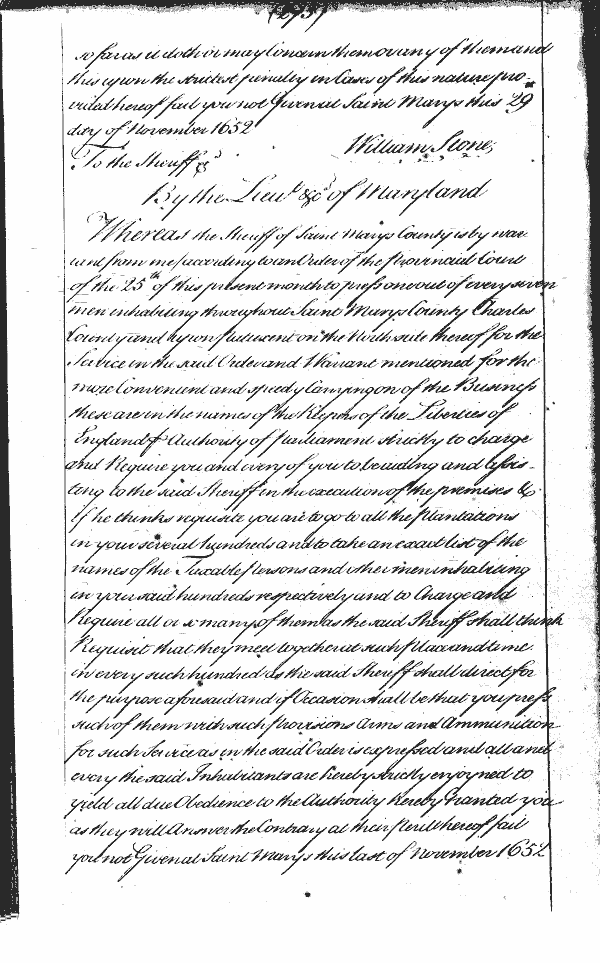 so far as it doth or may Concern them or any of them and
this upon the strictest penalty in Cases of this nature pro-
vided hereof fail you not Given at Saint Marys this 29
day of November 1652
William Stone,
To the Sheriff &c
By the Lieut &c of Maryland
Whereas the Sheriff of Saint Marys County is by war
rant from me according to an Order of the Provincial Court
of the 25th of this present month to press one out of every seven
men inhabiting throughout Saint Marys County Charles
County and upon Patuxent on the North side thereof for the
Service in the said Order and Warrant mentioned for the
more Convenient and speedy Carrying on of the Business
these are in the names of the Keepers of the Liberties of
England & Authority of Parliament strictly to charge
and Require you and every of you to be aiding and assis-
ting to the said Sheriff in the execution of the premises &
if he thinks requisite you are to go to all the Plantations
in your several hundreds and to take an exact list of the
names of the Taxable Persons and other men inhabiting
in your said hundreds respectively and to Charge and
Require all or so many of them as the said Sheriff shall think
Requisit that they meet together at such Place and time
in every such hundred as the said Sheriff shall direct for
the purpose aforesaid and if Occasion shall be that you press
such of them with such Provisions Arms and Ammunition
for such Service as in the said Order is expressed and all and
every the said Inhabitants are hereby strictly enjoyned to
yield all due Obedience to the Authority hereby Granted you
as they will Answer the Contrary at their Perill hereof fail
you not Given at Saint Marys this last of November 1652